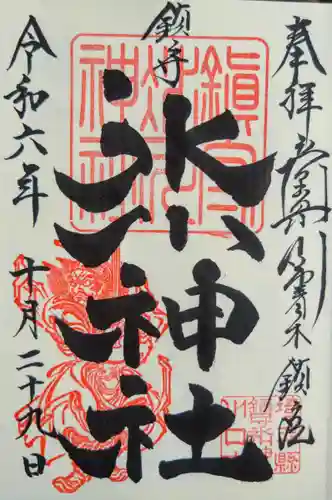 奉拝
青木鎮座
鎮守
氷川神社
令和六年
十月二十九日
鎮守
氷川
神社